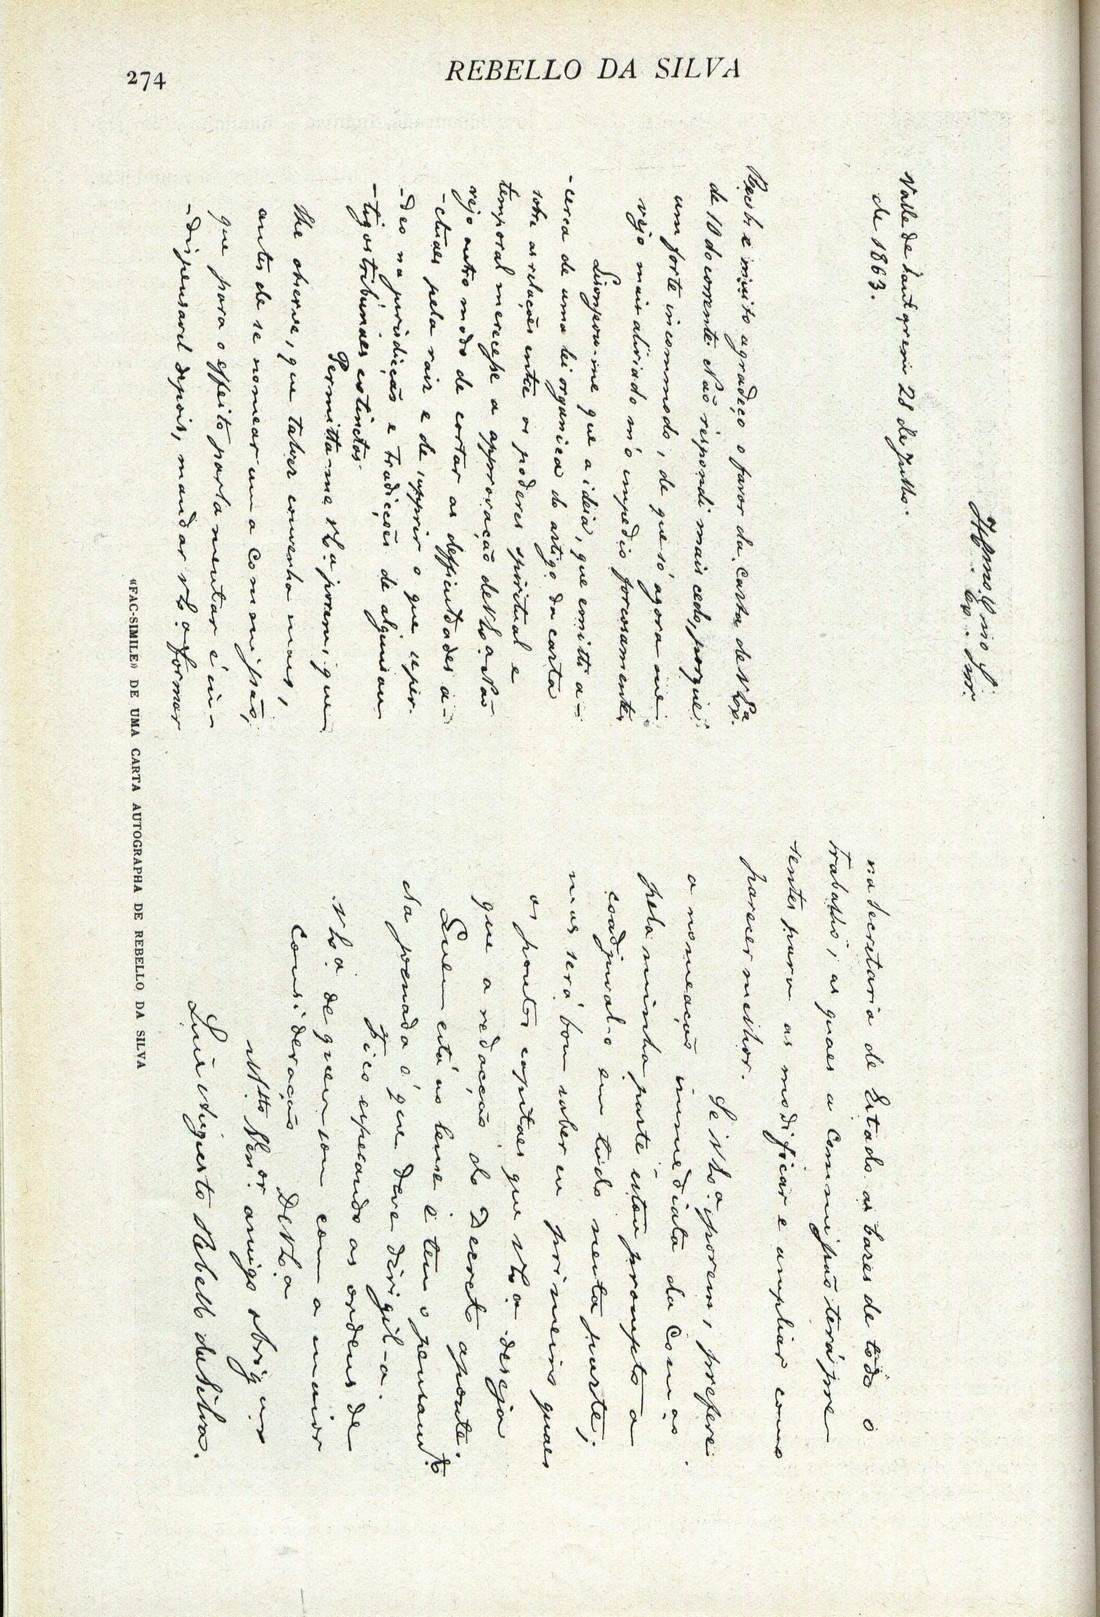 274
REBELLO DA SILVA
Illmo. e Exmo. Snr.
Valle de Santarem 28 de Julho
de 1863.
Recebi e muito agradeço o favor da carta de V. Exª
de 10 do corrente. Não respondi mais cedo, porque
um forte incommodo, de que só agora me
vejo mais aliviado m'o impedio forçosamente.
Lisonjeou-me que a ideia, que emitti a-
-cerca de uma lei organica do artigo da carta
sobre as relações entre os poderes espiritual e
temporal merecesse a approvação de V. Exª Não
vejo outro modo de cortar as difficuldades a-
-ctuaes pela raiz e de supprir o que
-deo na jurisdicção e tradicções de alguns an-
-tigos tribunaes extinctos.
Permitta-me V. Exª porem, que
lhe observe, que talvez convenha mais,
antes de se nomear uma Commissão,
que para o effeito parlamentar é in-
-dispensavel depois, mandar V. Exª formar
na Secretaria de Estado as bases de todo o
trabalho, as quaes a Commissão terá pre
sentes para as modificar e ampliar como
parecer melhor.
Se V. Exª porem, prefere
a nomeação immediata da Commissão
pela minha parte estou prompto a
coadjuval-o em tudo nesta parte;
mas será bom saber eu primeiro quaes
os pontos capitaes que V. Exª deseja
que a redacção do Decreto aponte.
Quem está ao leme e tem o pensamento
da jornada é que deve dirigil-a.
Fico esperando as ordens de
V. Exª de quem sou com a maior
Consideração
De V. Exª
Mtto Venor amigo obrigº
Luiz Augusto Rebello da Silva.
«FAC-SIMILE» DE UMA CARTA AUTOGRAPHA DE REBELLO DA SILVA